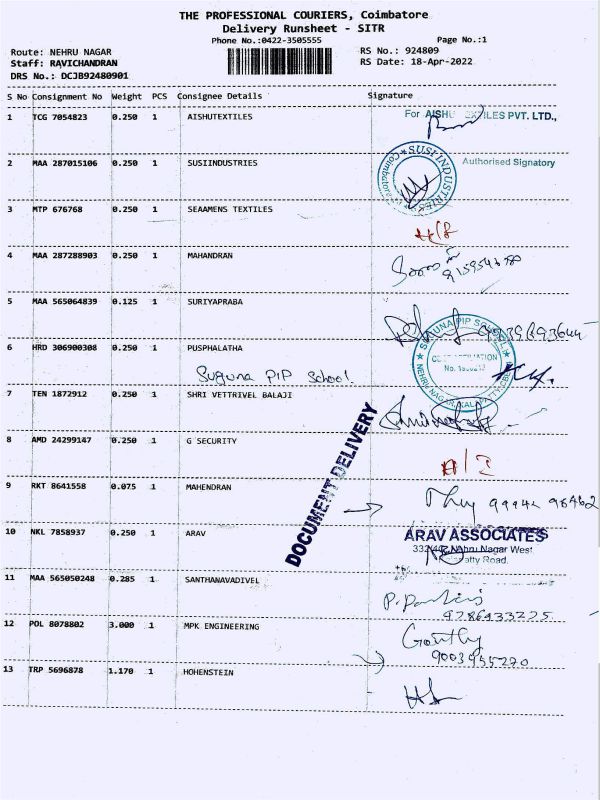 THE PROFESSIONAL COURIERS, Coimbatore
Delivery Runsheet - SITR
Phone No.:0422-3505555 Page No.:1
Route: NEHRU NAGAR RS No.: 924809
Staff: RAVICHANDRAN RS Date: 18-Apr-2022
DRS No.: DCJB92480901
S No Consignment No Weight PCS Consignee Details Signature
1 TCG 7054823 0.250 1 AISHUTEXTILES For AISHU TEXTILES PVT. LTD.,
Authorised Signatory
2 MAA 287015106 0.250 1 SUSIINDUSTRIES SUSI INDUSTRIES Coimbatore
3 MTP 676768 0.250 1 SEAAMENS TEXTILES
4 MAA 287288903 0.250 1 MAHANDRAN
5 MAA 565064839 0.125 1 SURIYAPRABA
SUGUNA PIP SCHOOL
6 HRD 306900308 0.250 1 PUSPHALATHA
Suguna PIP School.
NEHRU NAGAR, KALAPATTY, CBE
7 TEN 1872912 0.250 1 SHRI VETTRIVEL BALAJI
8 AMD 24299147 0.250 1 G SECURITY
DOCUMENT DELIVERY
9 RKT 8641558 0.075 1 MAHENDRAN
10 NKL 7858937 0.250 1 ARAV ARAV ASSOCIATES
Nehru Nagar West
Road.
11 MAA 565050248 0.285 1 SANTHANAVADIVEL
12 POL 8078802 3.000 1 MPK ENGINEERING
13 TRP 5696878 1.170 1 HOHENSTEIN